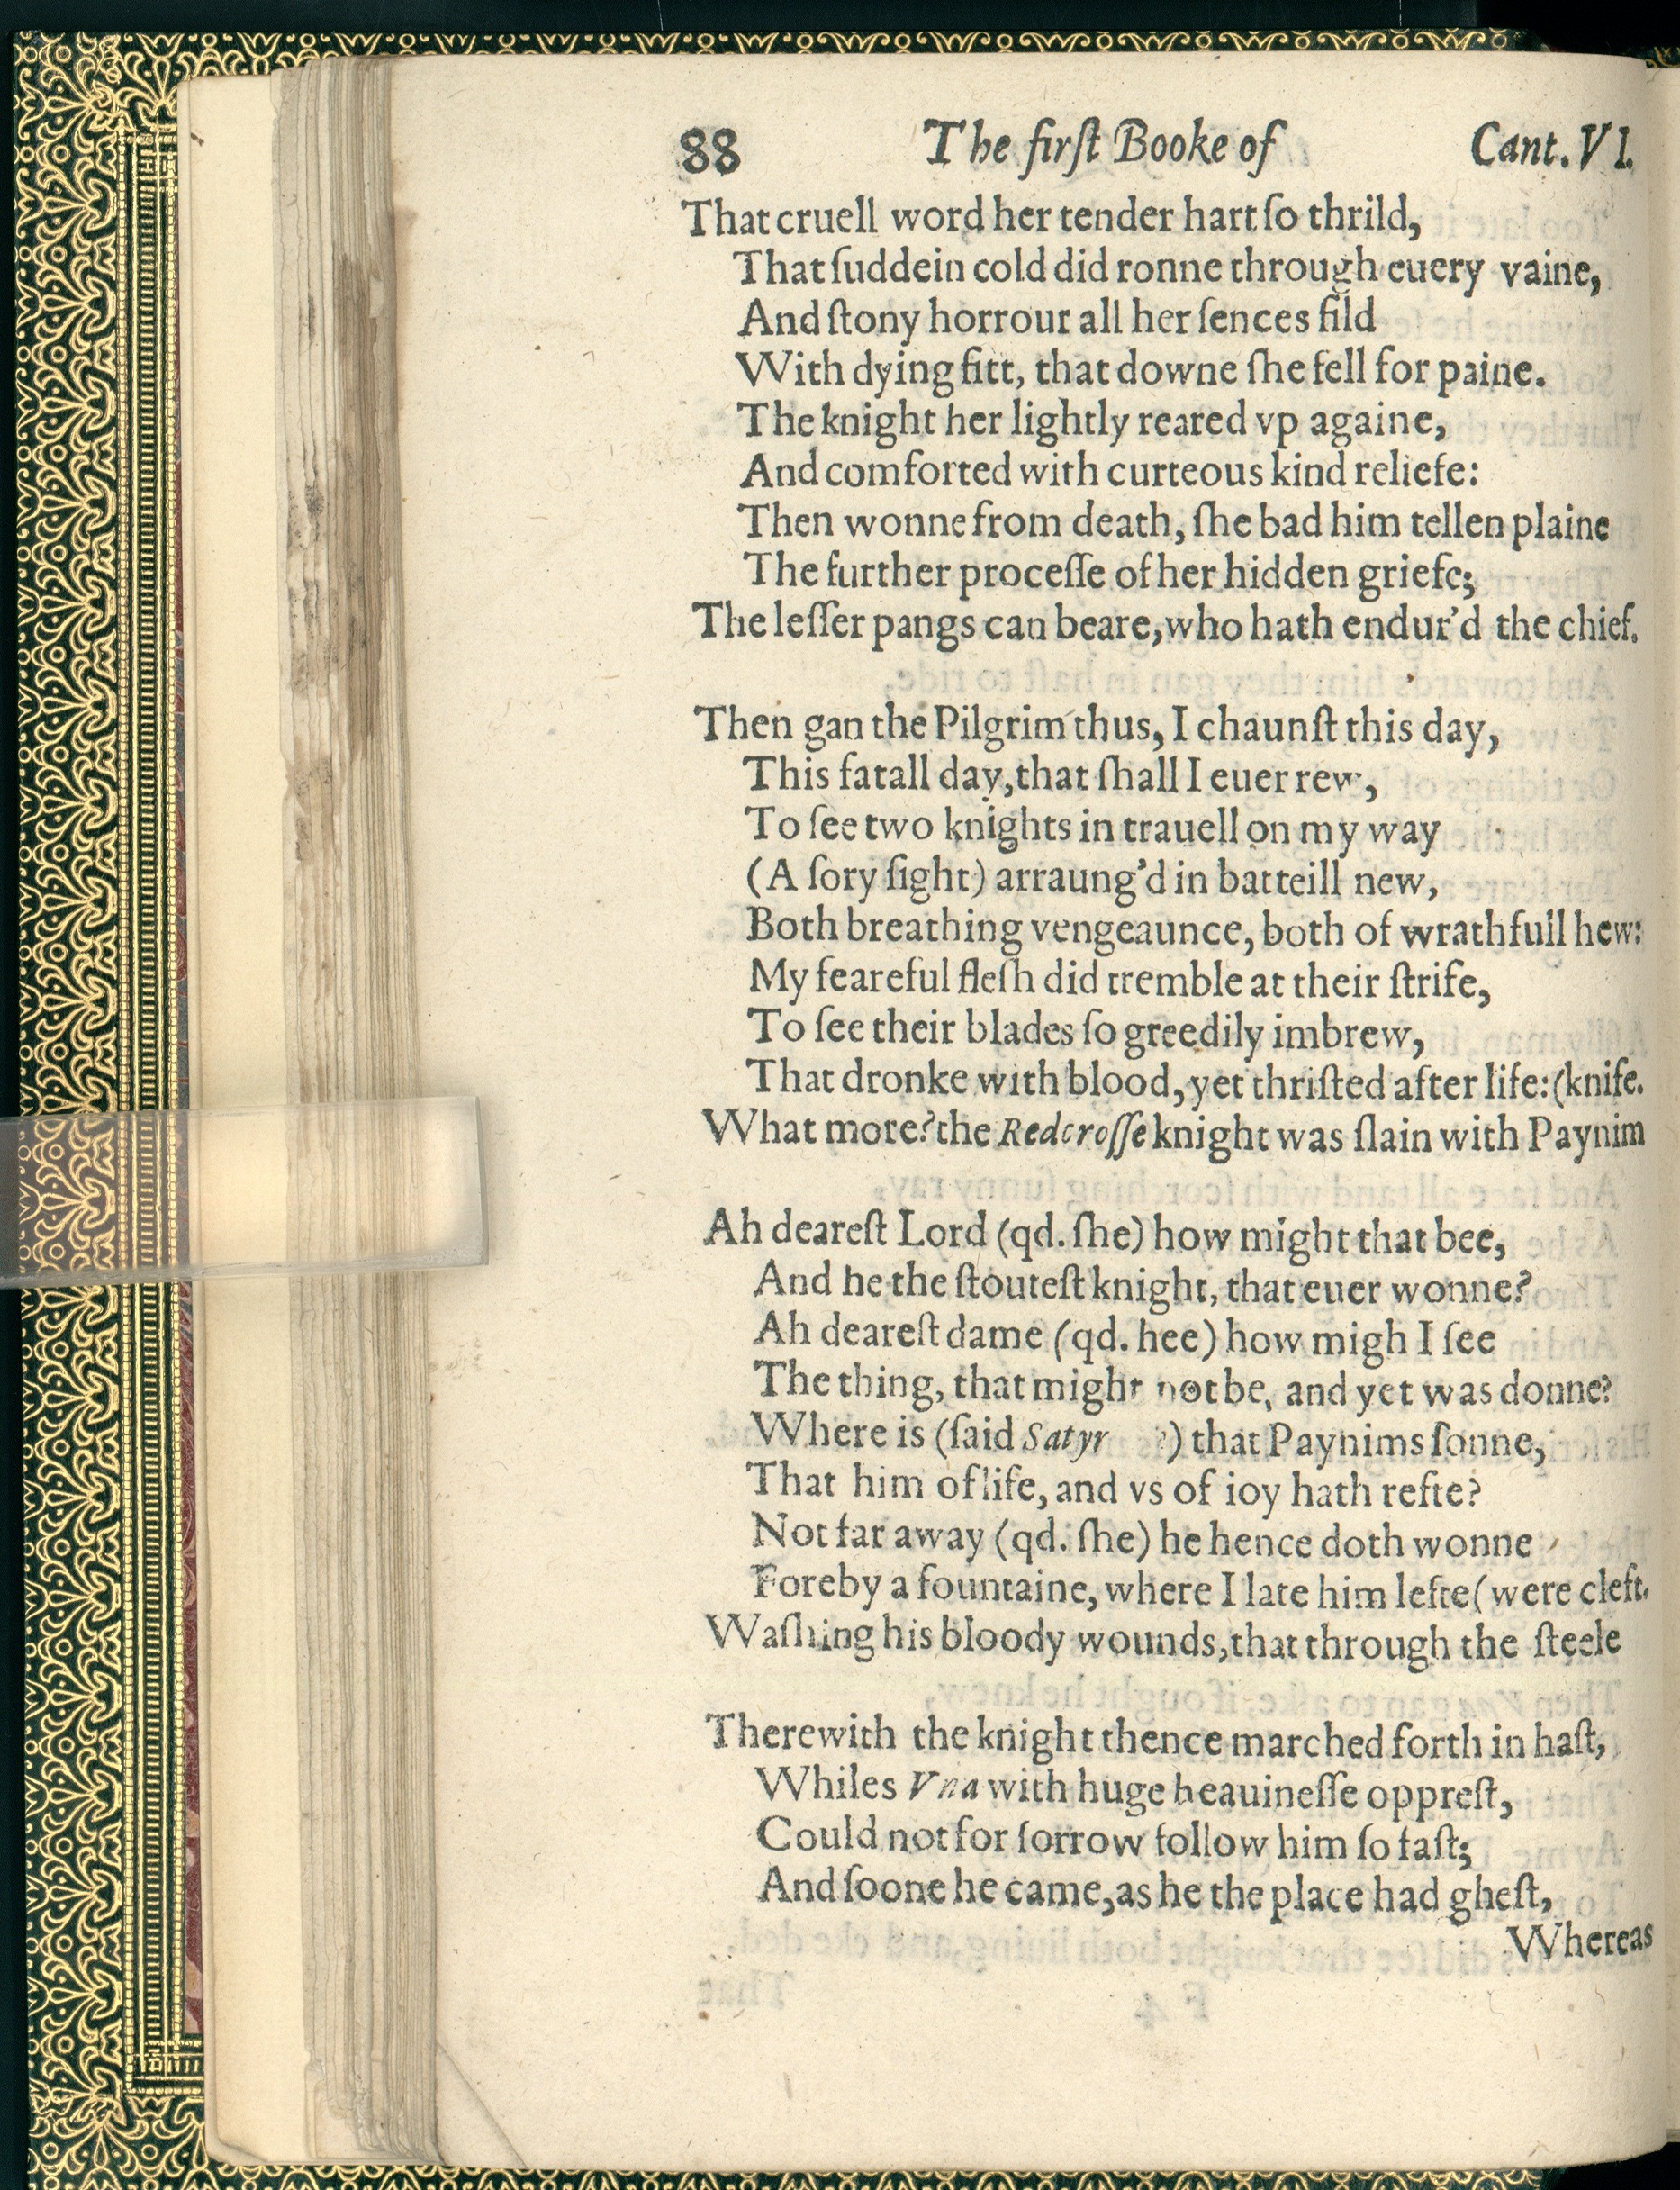 88 The firſt Booke of Cant. VI.
That cruell word her tender hart ſo thrild,
That ſuddein cold did ronne through euery vaine,
And ſtony horrour all her ſences fild
With dying fitt, that downe ſhe fell for paine.
The knight her lightly reared vp againe,
And comforted with curteous kind reliefe:
Then wonne from death, ſhe bad him tellen plaine
The further proceſſe of her hidden griefe;
The leſſer pangs can beare, who hath endur'd the chief.
Then gan the Pilgrim thus, I chaunſt this day,
This fatall day, that ſhall I euer rew,
To ſee two knights in trauell on my way
(A ſory ſight) arraung'd in batteill new,
Both breathing vengeaunce, both of wrathfull hew:
My feareful fleſh did tremble at their ſtrife,
To ſee their blades ſo greedily imbrew,
That dronke with blood, yet thriſted after life: (knife.
What more? the Redcroſſe knight was ſlain with Paynim
Ah deareſt Lord (qd. ſhe) how might that bee,
And he the ſtouteſt knight, that euer wonne?
Ah deareſt dame (qd. hee) how migh I ſee
The thing, that might not be, and yet was donne?
Where is (ſaid Satyr ) that Paynims ſonne,
That him of life, and vs of ioy hath refte?
Not far away (qd. ſhe) he hence doth wonne
Foreby a fountaine, where I late him lefte (were cleft.
Waſhing his bloody wounds, that through the ſteele
Therewith the knight thence marched forth in haſt,
Whiles Vna with huge heauineſſe oppreſt,
Could not for ſorrow follow him ſo faſt;
And ſoone he came, as he the place had gheſt,
Whereas